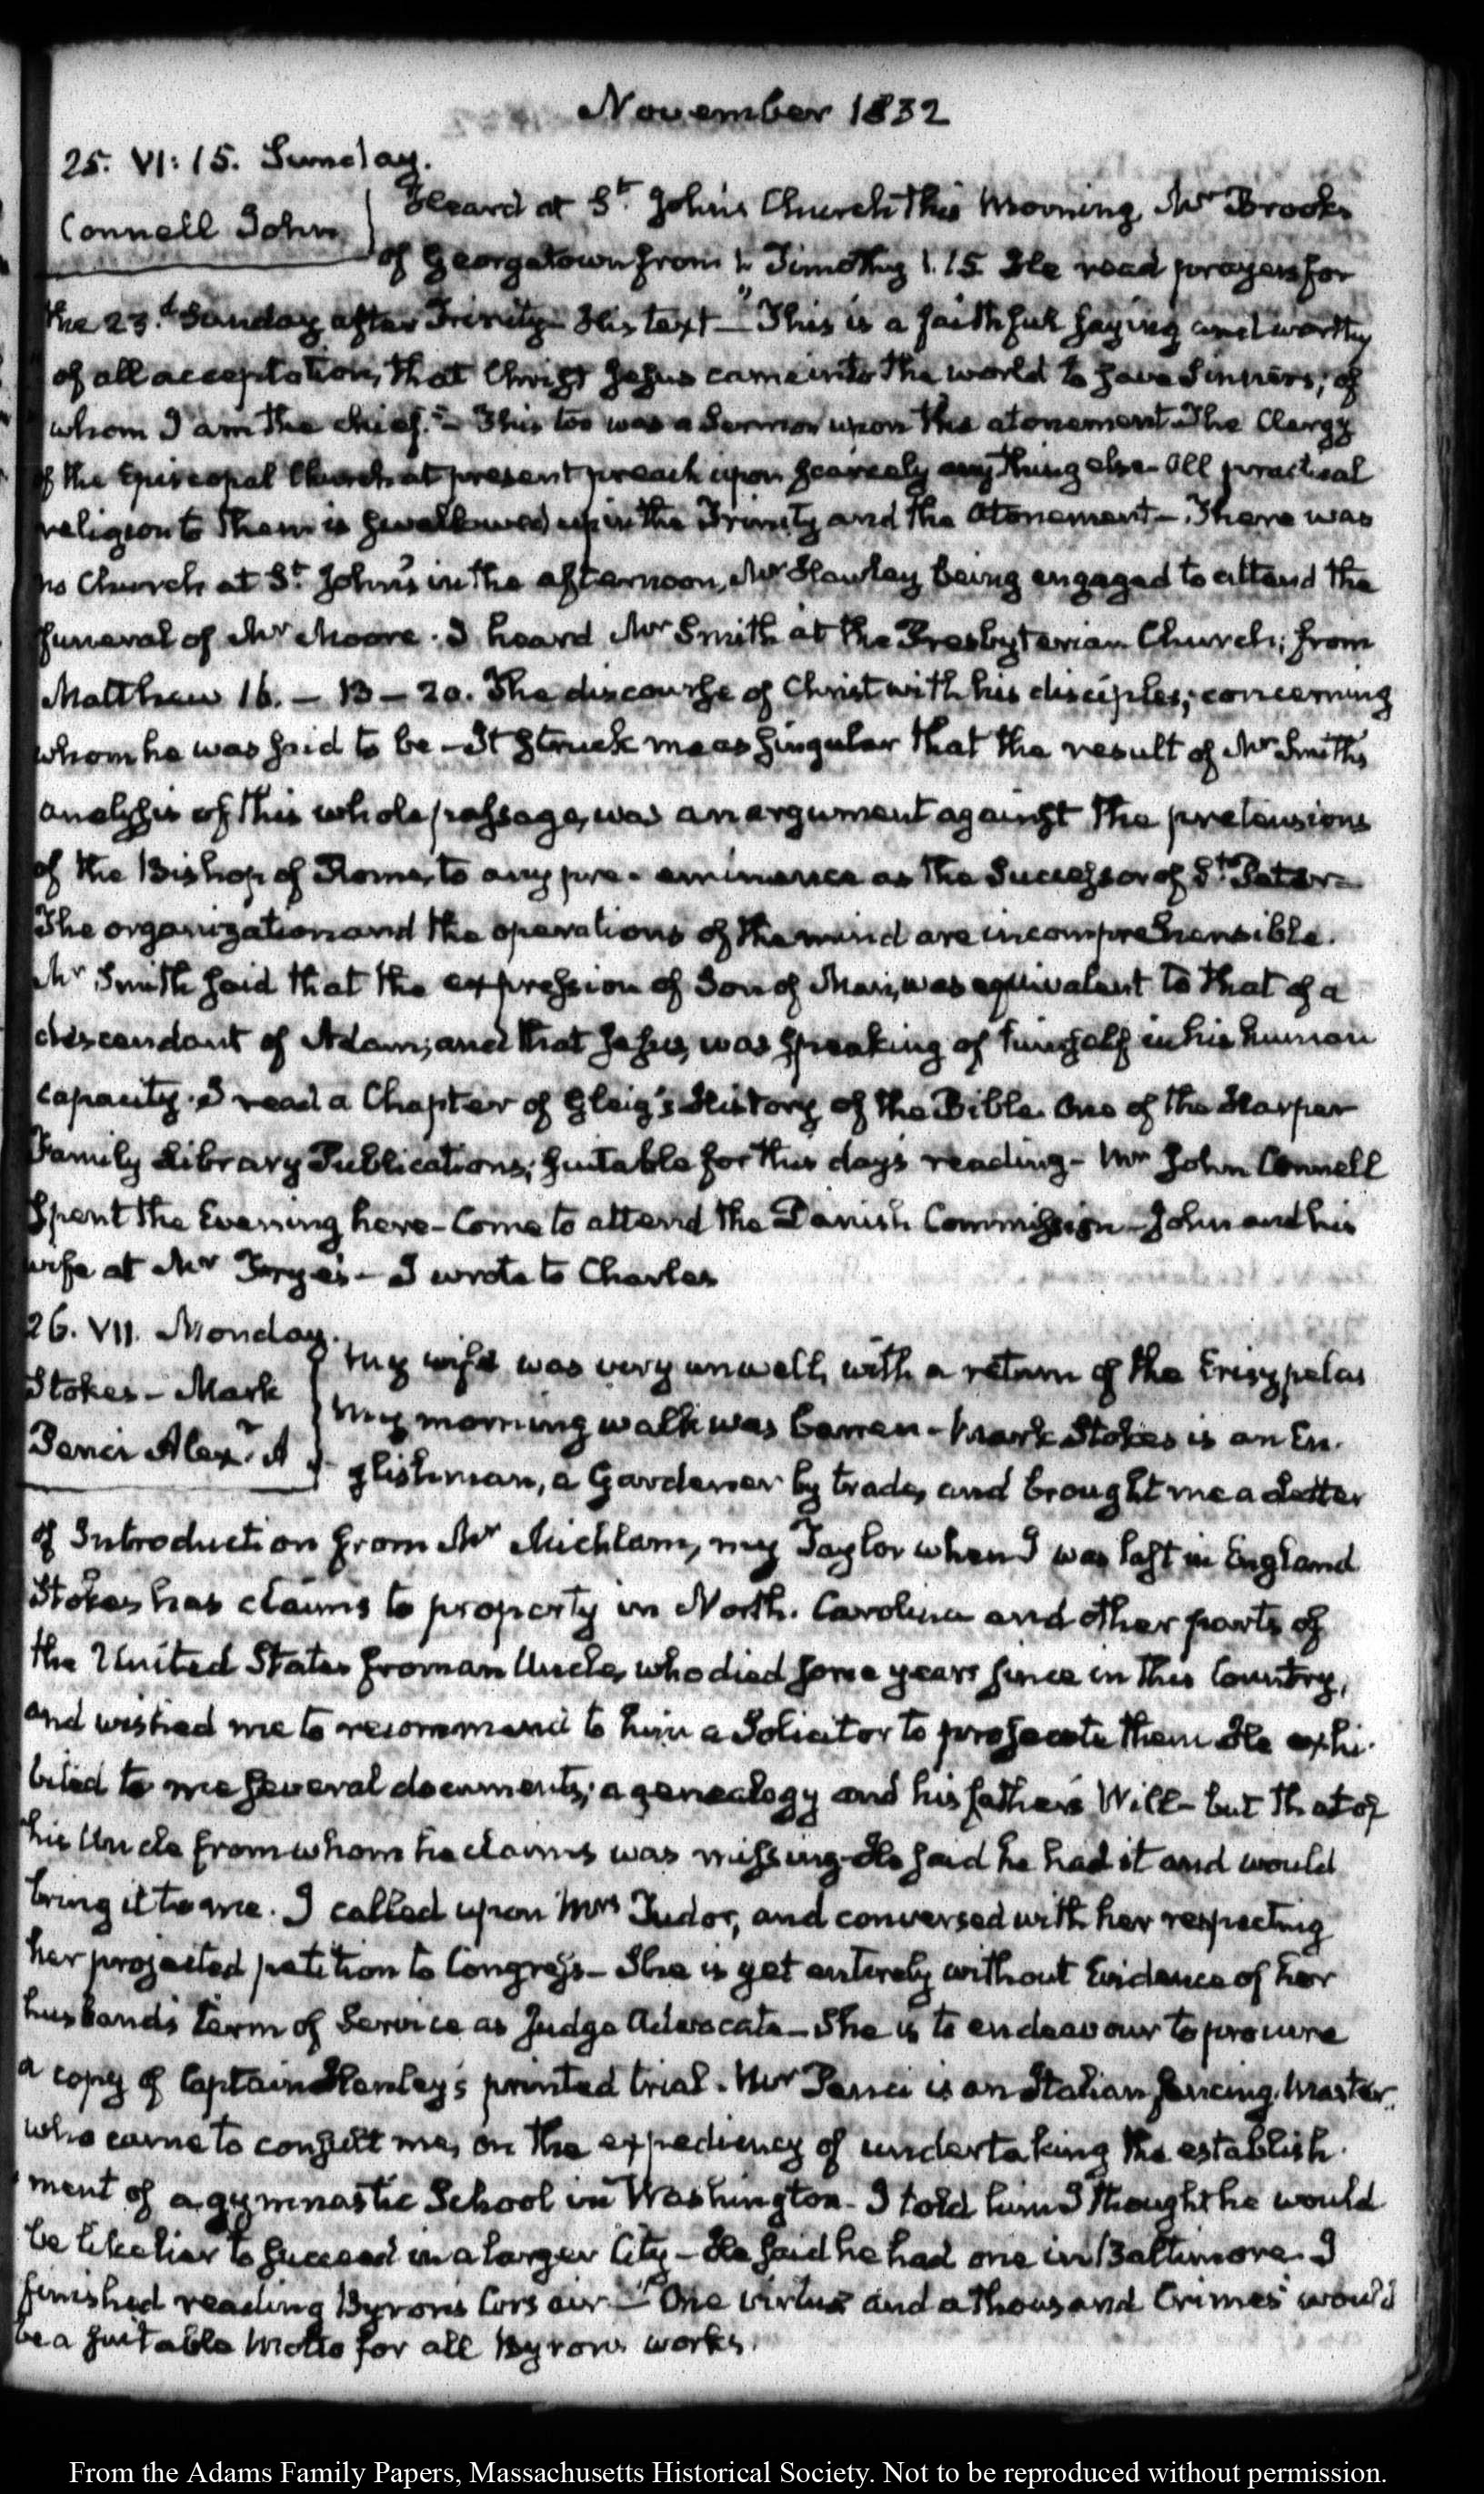 November 1832
25. VI:15. Sunday.
Connell John
Heard at St. John's Church this Morning, Mr Brooks
of Georgetown from 1. Timothy 1.15. He read prayers for
the 23.d Sunday after Trinity. His text—"This is a faithful saying and worthy
of all acceptation, that Christ Jesus came into the world to save Sinners; of
whom I am the chief."— This too was a Sermon upon the atonement. The Clergy
of the Episcopal Church at present preach upon scarcely any thing else. All practical
religion to them is swallowed up in the Trinity and the Atonement— There was
no Church at St. John's in the afternoon, Mr Hawley being engaged to attend the
funeral of Mr Moore. I heard Mr Smith at the Presbyterian Church; from
Matthew 16.—13—20. The discourse of Christ with his disciples, concerning
whom he was said to be—It struck me as singular that the result of Mr Smith's
analysis of this whole passage, was an argument against the pretensions
of the Bishop of Rome, to any pre-eminence as the Successor of St. Peter—
The organization and the operations of the mind are incomprehensible.
Mr Smith said that the expression of Son of Man, was equivalent to that of a
descendant of Adam; and that Jesus, was speaking of himself in his human
capacity. I read a Chapter of Gleig's History of the Bible. One of the Harper
Family Library Publications; suitable for this day's reading— Mr John Connell
spent the Evening here—Come to attend the Danish Commission—John and his
wife at Mr Frye's— I wrote to Charles
26. VII. Monday.
Stokes—Mark
Alexr. A
My wife was very unwell, with a return of the Erisypelas
My morning walk was barren—Mark Stokes is an En-
glishman, a Gardener by trade, and brought me a Letter
of Introduction from Mr my Taylor when I was last in England
Stokes has claims to property in North-Carolina and other parts of
the United States from an Uncle, who died some years since in this Country,
and wished me to recommend to him a Solicitor to prosecute them He exhi-
bited to me several documents; a genealogy and his father's Will—but that of
his Uncle from whom he claims was missing—He said he had it and would
bring it to me. I called upon Mrs Tudor, and conversed with her respecting
her projected petition to Congress— She is yet entirely without Evidence of her
husband's term of Service as Judge Advocate—She is to endeavour to procure
a copy of Captain Henley's printed trial. Mr is an Italian fencing-Master,
who came to consult me, on the expediency of undertaking the establish-
ment of a gymnastic School in Washington—I told him I thought he would
be likelier to succeed in a larger City—He said he had one in Baltimore. I
finished reading Byron's Corsair—"One virtue and a thousand Crimes" would
be a suitable Motto for all Byron's works.
From the Adams Family Papers, Massachusetts Historical Society. Not to be reproduced without permission.